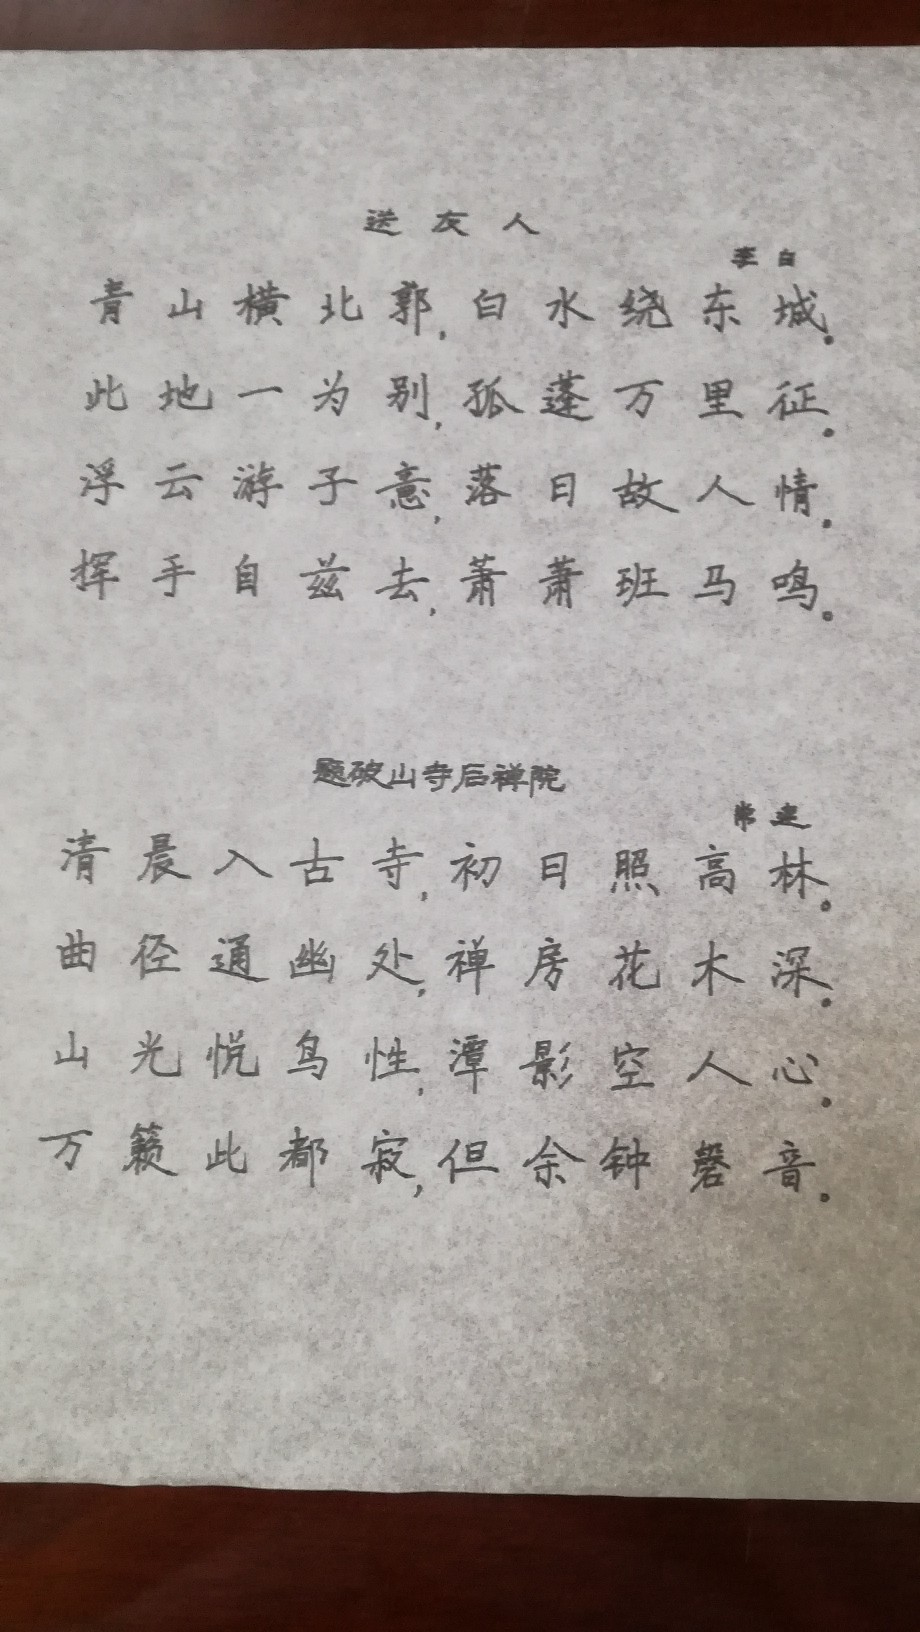 送友人
李白
青山横北郭,白水绕东城。
此地一为别,孤蓬万里征。
浮云游子意,落日故人情。
挥手自兹去,萧萧班马鸣。
题破山寺后禅院
常建
清晨入古寺,初日照高林。
曲径通幽处,禅房花木深。
山光悦鸟性,潭影空人心。
万籁此都寂,但余钟磬音。